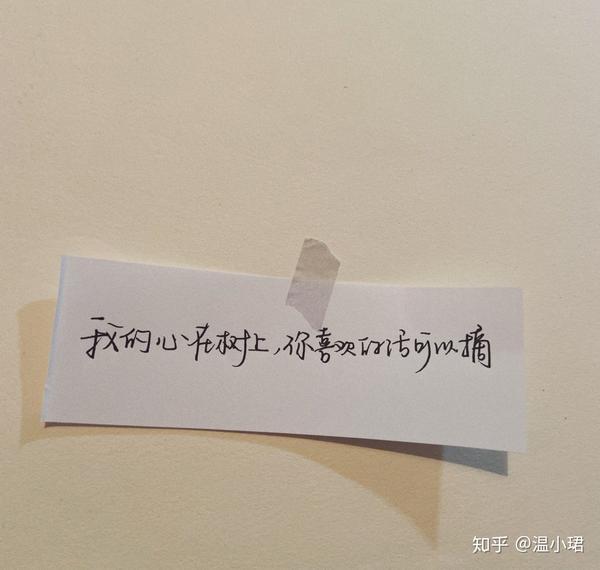 我的心在树上,你喜欢的话可以摘
知乎 @温小珺